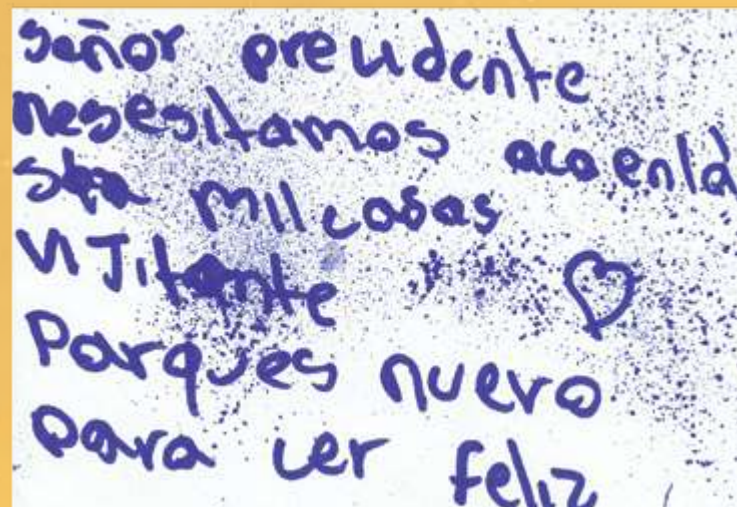 señor preudente
nesesitamos aca enla
mil casas
vijitante
Parques nuevo
para cer feliz